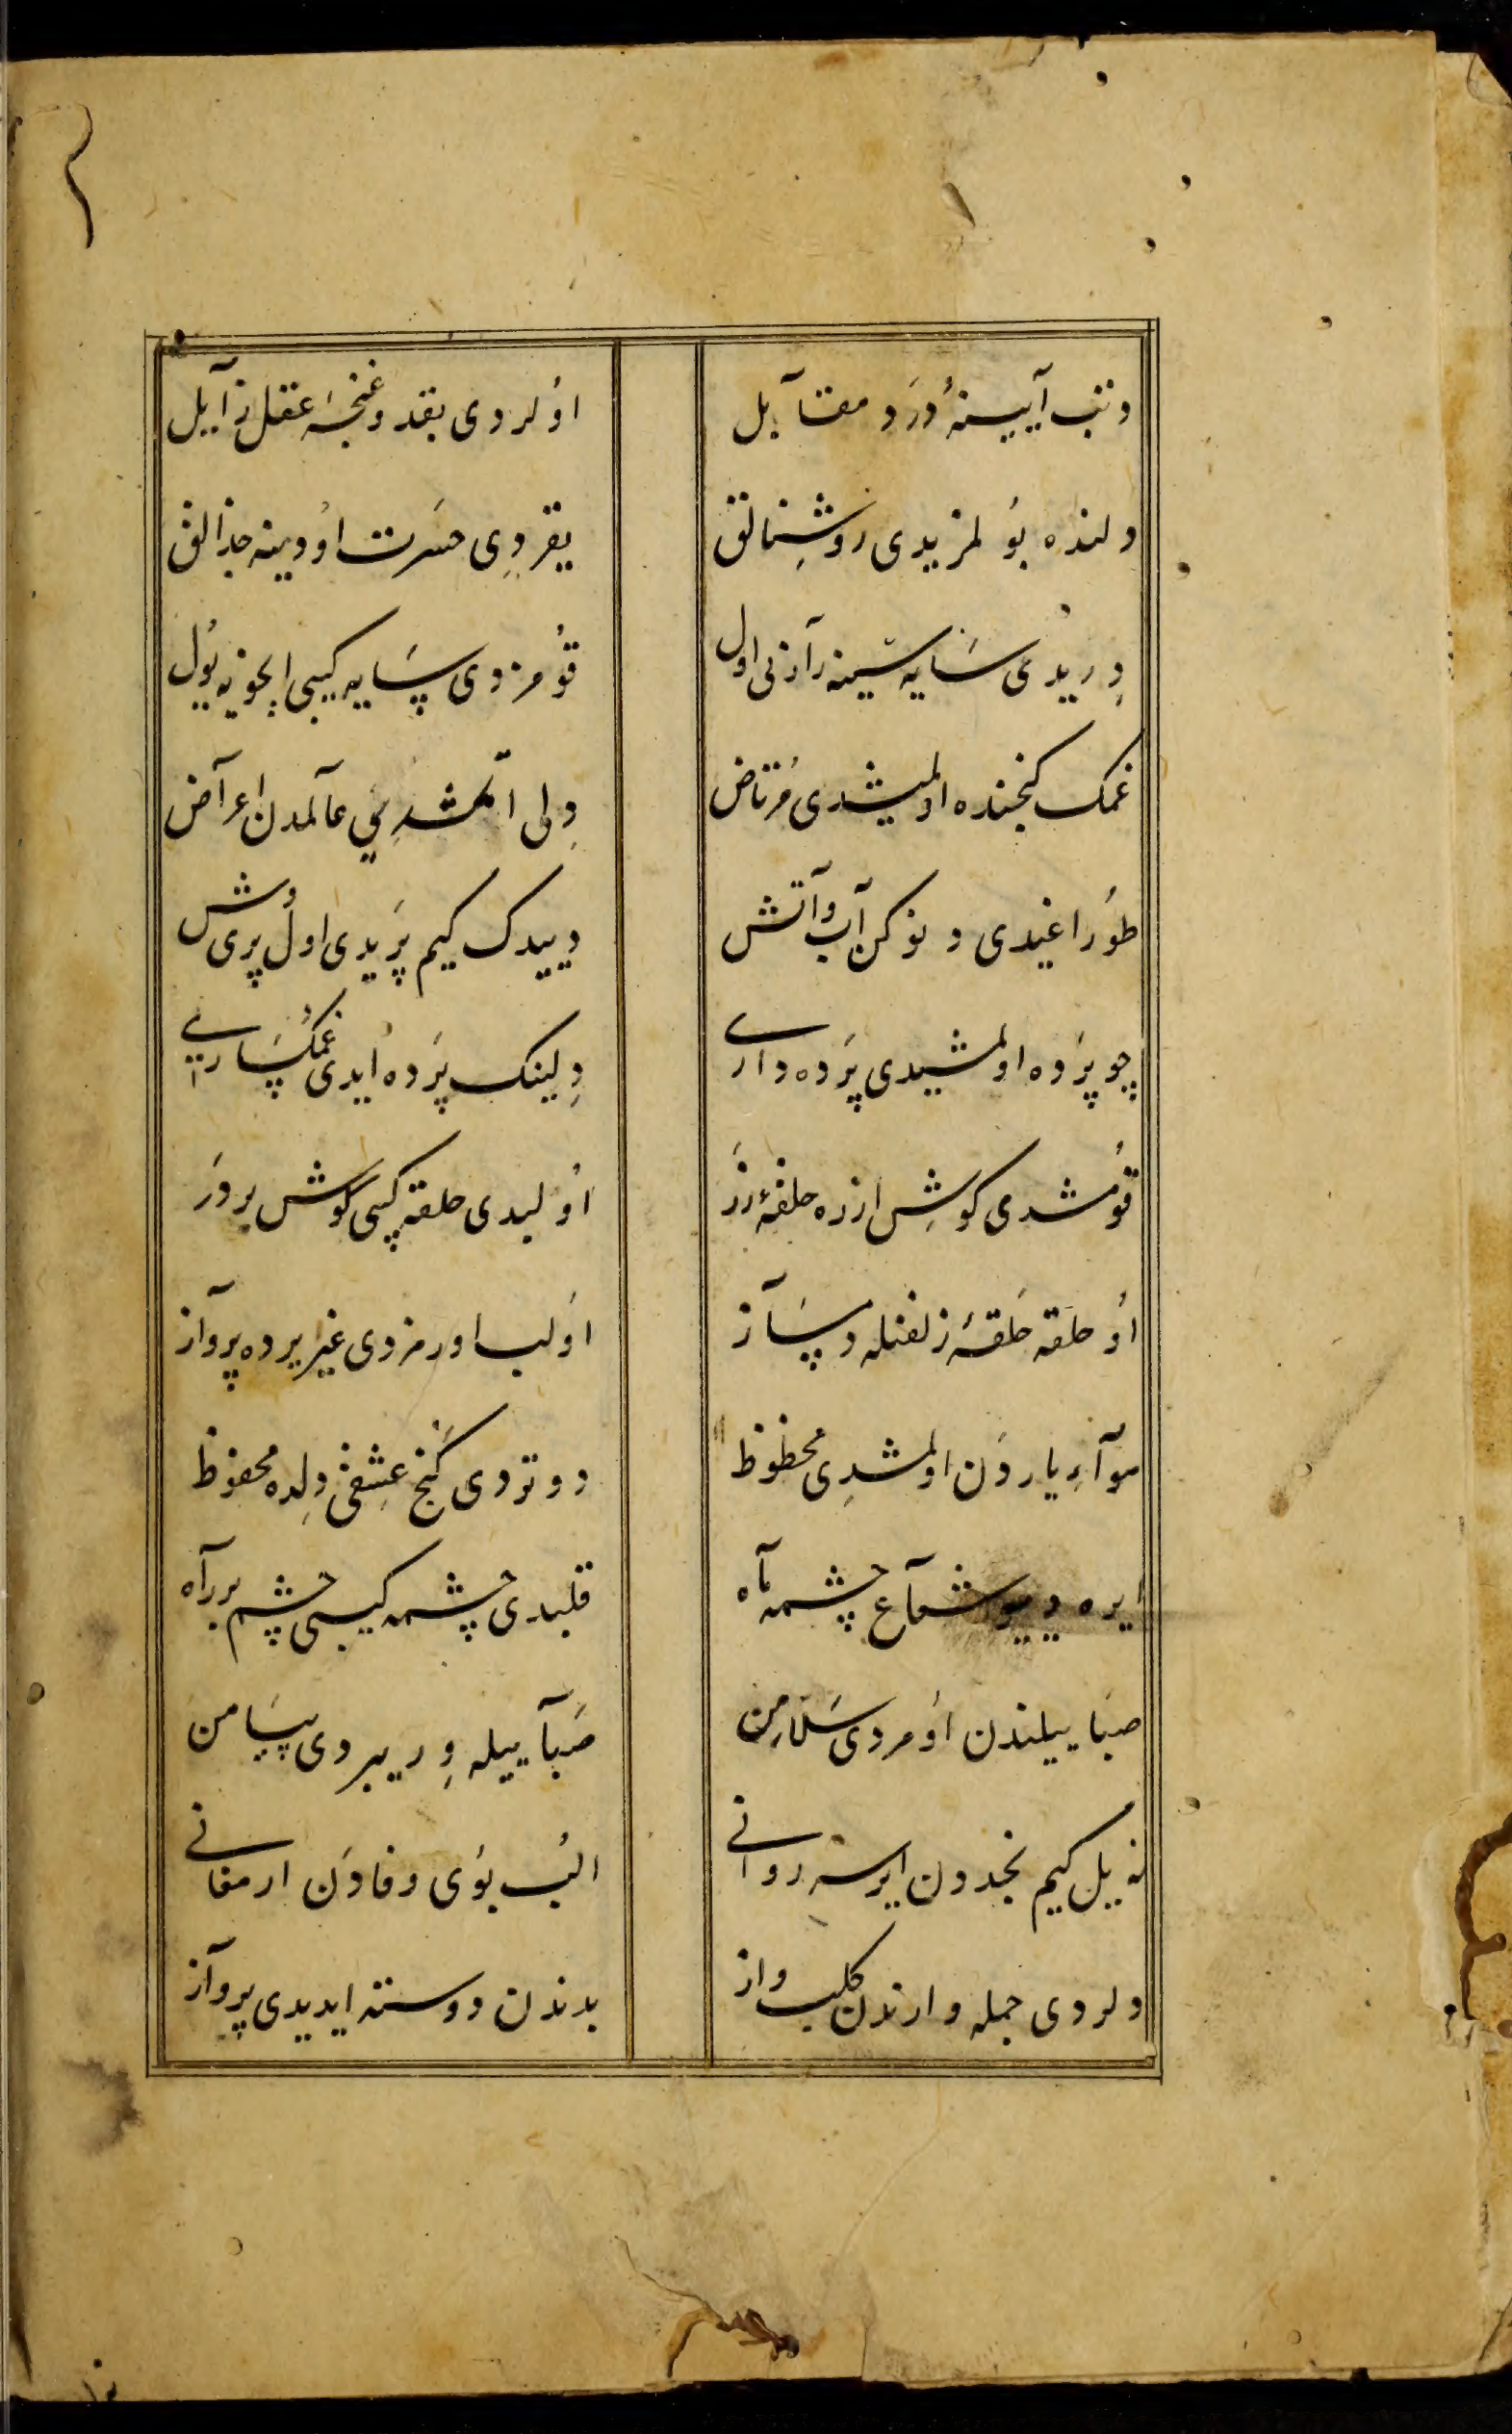 دتب آیینهٔ دَرَد مقابل
اوُلردی بقد و غنجهٔ عقل زآیل
دلنده بوُلمزیدی روشِنالق
یقردِی حسَرت اوُدینه جذالق
دِریدی سَایه سینه رآزنی اول
قوُمزدی سَایه کیبی ایچونه یوُل
غمک کنجنده اولمیشدی مُرتاض
دِلی اتمشدِی عآلمدن اعرآض
طوُراغیدی دنوکن آب و آتش
دییدک کیم پَریدی اول پری وش
چو پَرده اولمشیدی پَرده داری
دِلینک پَرده ایدی غمکسَاری
قوُمشدی کوشِ ازره حلقهٔ زَر
اوُلیدی حلقه کیبی کوش بر دَر
اوُ حلقه حَلقهٔ زلفنله دمسَآز
اوَلب اورمزدی غیر یرده پروآز
هوآءِ یاردَن اولمشدِی محظوظ
دوتردی کَنج عِشقنی دِلده محفوظ
ایره دییو شعآع چشمهٔ مآه
قلیدی چشمه کیبی چشم بر رآه
صبَا ییلندن اوُمردی سَلامِن
صَبآ ییله وِریبردی پیَامن
نه ییل کیم نجددن ایرسه روانی
الُب بوُی وفادَن ارمغانی
ولردی جمله وارندن کلب واز
بدندن دوسته ایدیدی پروآز